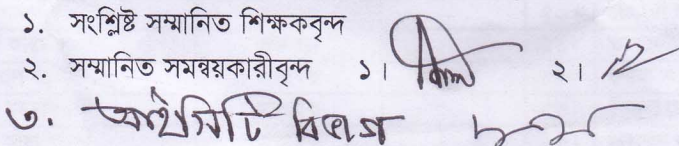 ১. সংশ্লিষ্ট সম্মানিত শিক্ষকবৃন্দ
২. সম্মানিত সমন্বয়কারীবৃন্দ ১। ২।
৩. আইসিটি বিভাগ